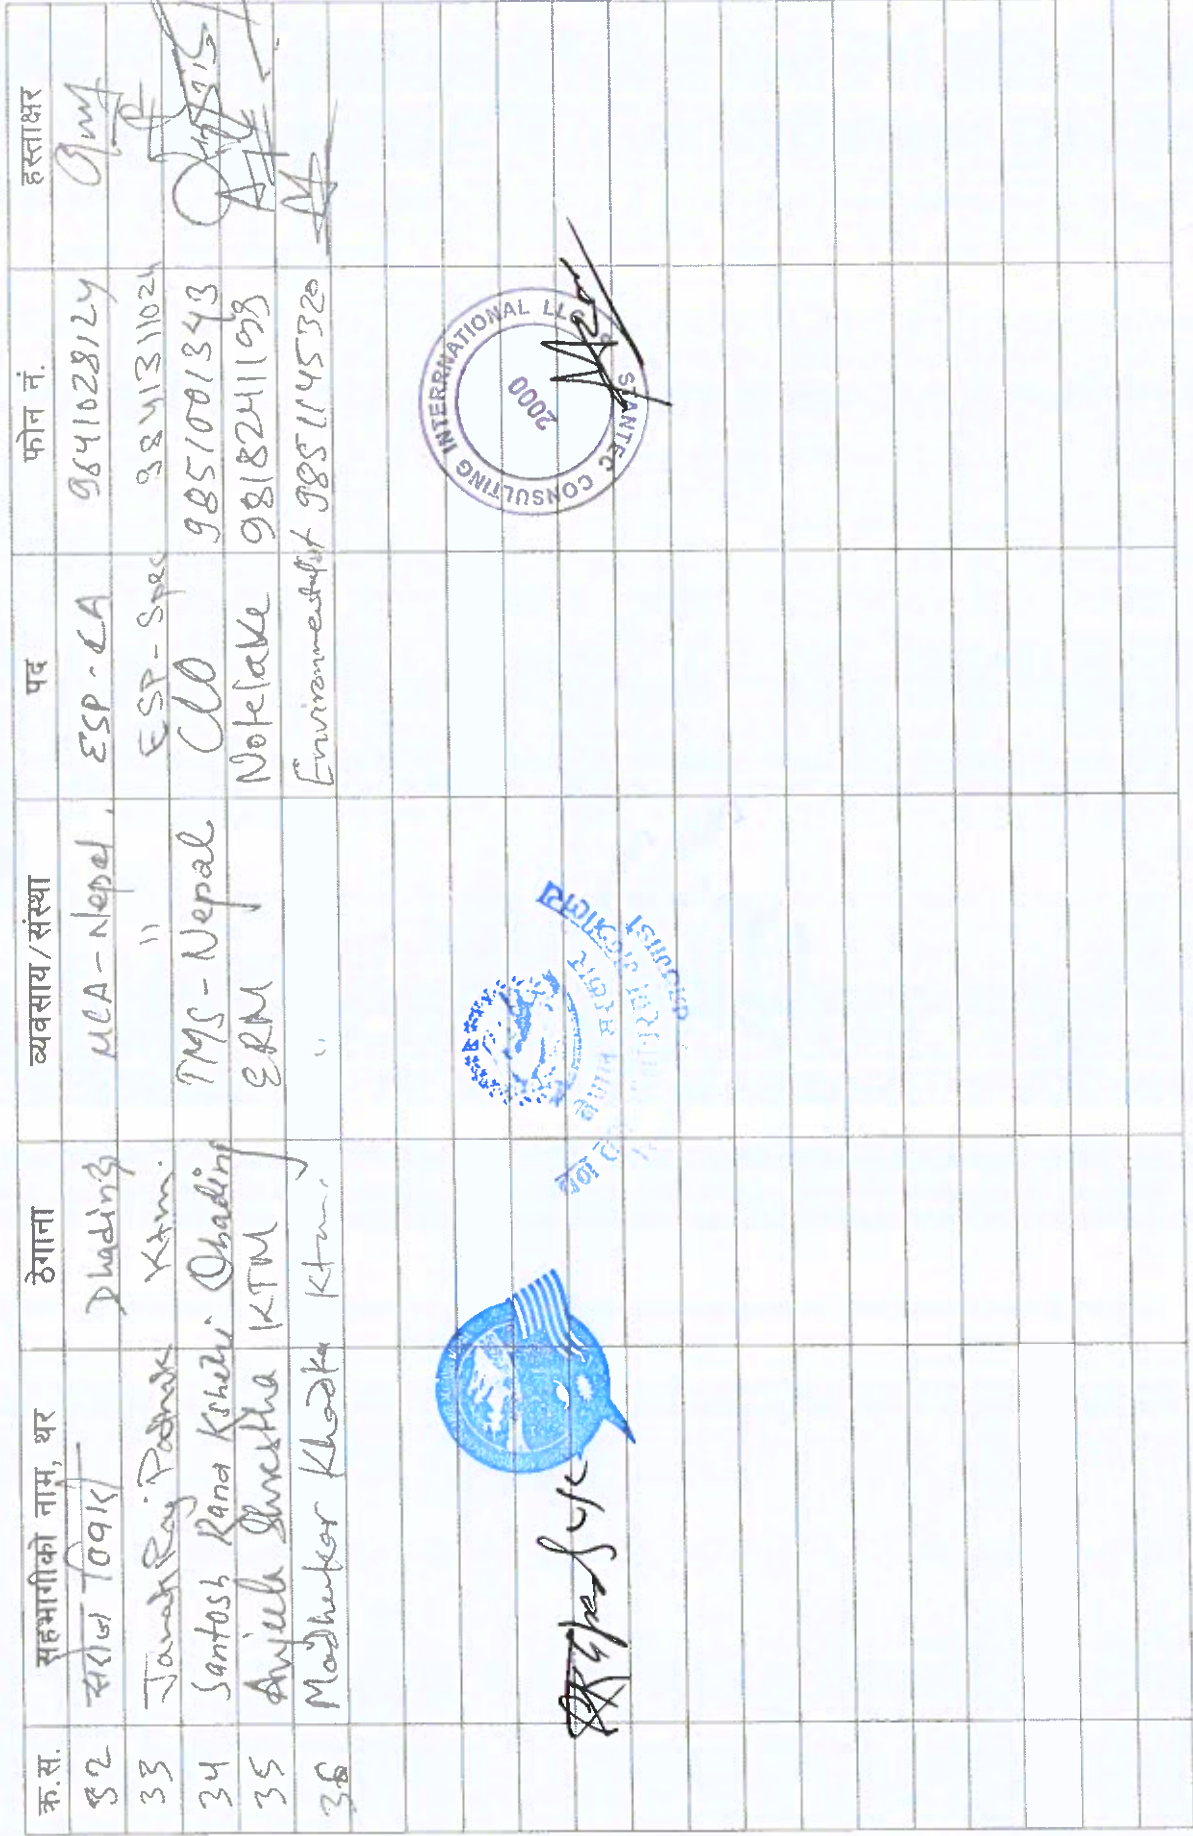 क्र.स. सहभागीको नाम, थर ठेगाना व्यवसाय/संस्था पद फोन नं. हस्ताक्षर
32 Dhading MCA-Nepal, ESP-CA 9841028124
33 Ktm. " ESP-Spec 9841311024
34 Santosh Rana Kshetri Dhading TMS-Nepal CLO 9851001343
35 Anjeela Shrestha KTM ERM Notetake 9818241198
36 Madhukar Khadka Ktm. " Environmentalist 9851145320
STANTEC CONSULTING INTERRNATIONAL LLC
2000
नेपाल सरकार